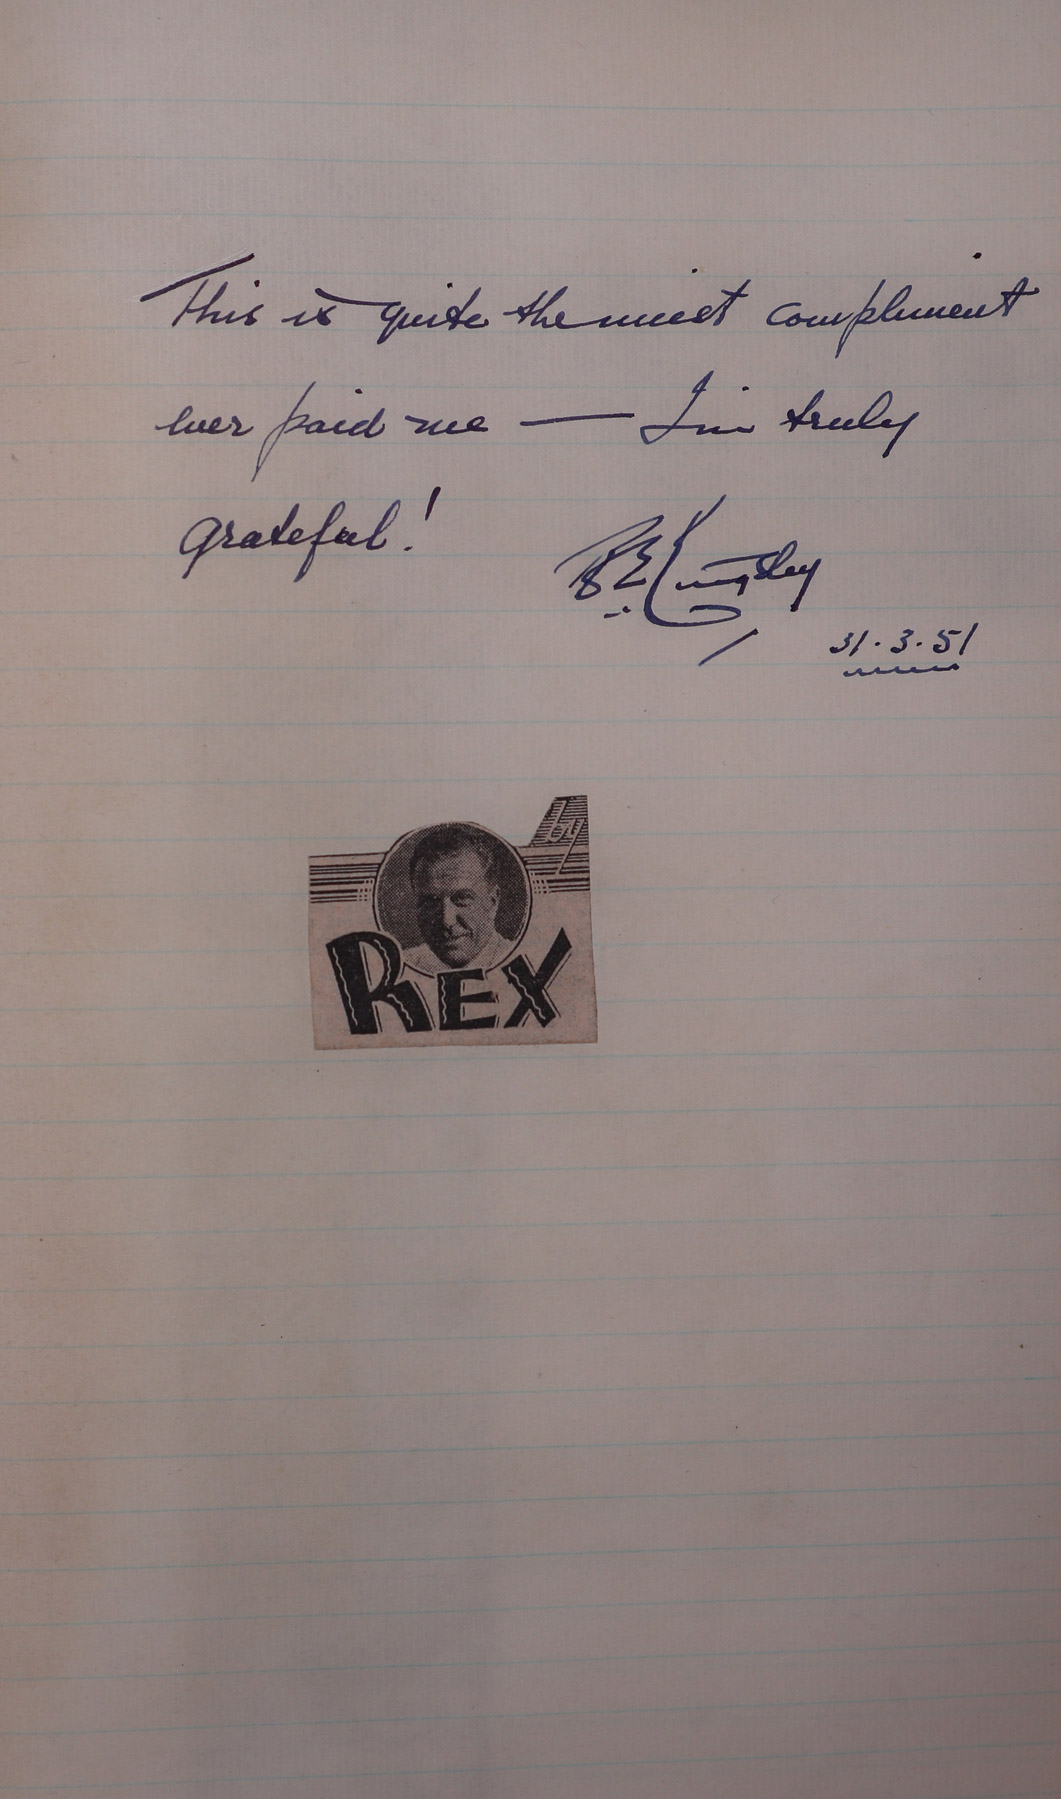 This is quite the nicest compliment
ever paid me — I'm truly
grateful!
R E Kingsley
31.3.51
by
REX